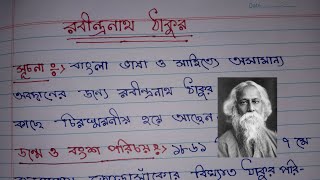 রবীন্দ্রনাথ ঠাকুর
সূচনা ঃ> বাংলা ভাষা ও সাহিত্যে অসামান্য
অবদানের জন্যে রবীন্দ্রনাথ ঠাকুর
কাছে চিরস্মরনীয় হয়ে আছেন
জন্ম ও বংশ পরিচয় ঃ> ১৮৬১ ৭ মে
বিখ্যাত ঠাকুর পরি-